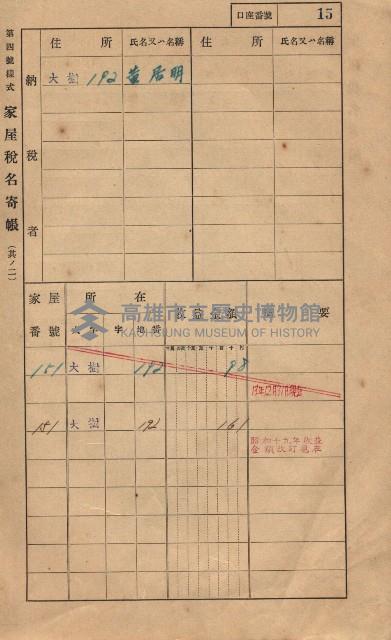 口座番號 15
第四號樣式 家屋稅名寄帳 (其ノ二)
納稅者
住所 氏名又ハ名稱 住所 氏名又ハ名稱
大樹 192 黃居明
家屋番號 所在 收益金額 要
大字 字 地番
151 大樹 192 98
151 大樹 192 161
昭和十九年收益
金額改訂
高雄市立歷史博物館
KAOHSIUNG MUSEUM OF HISTORY